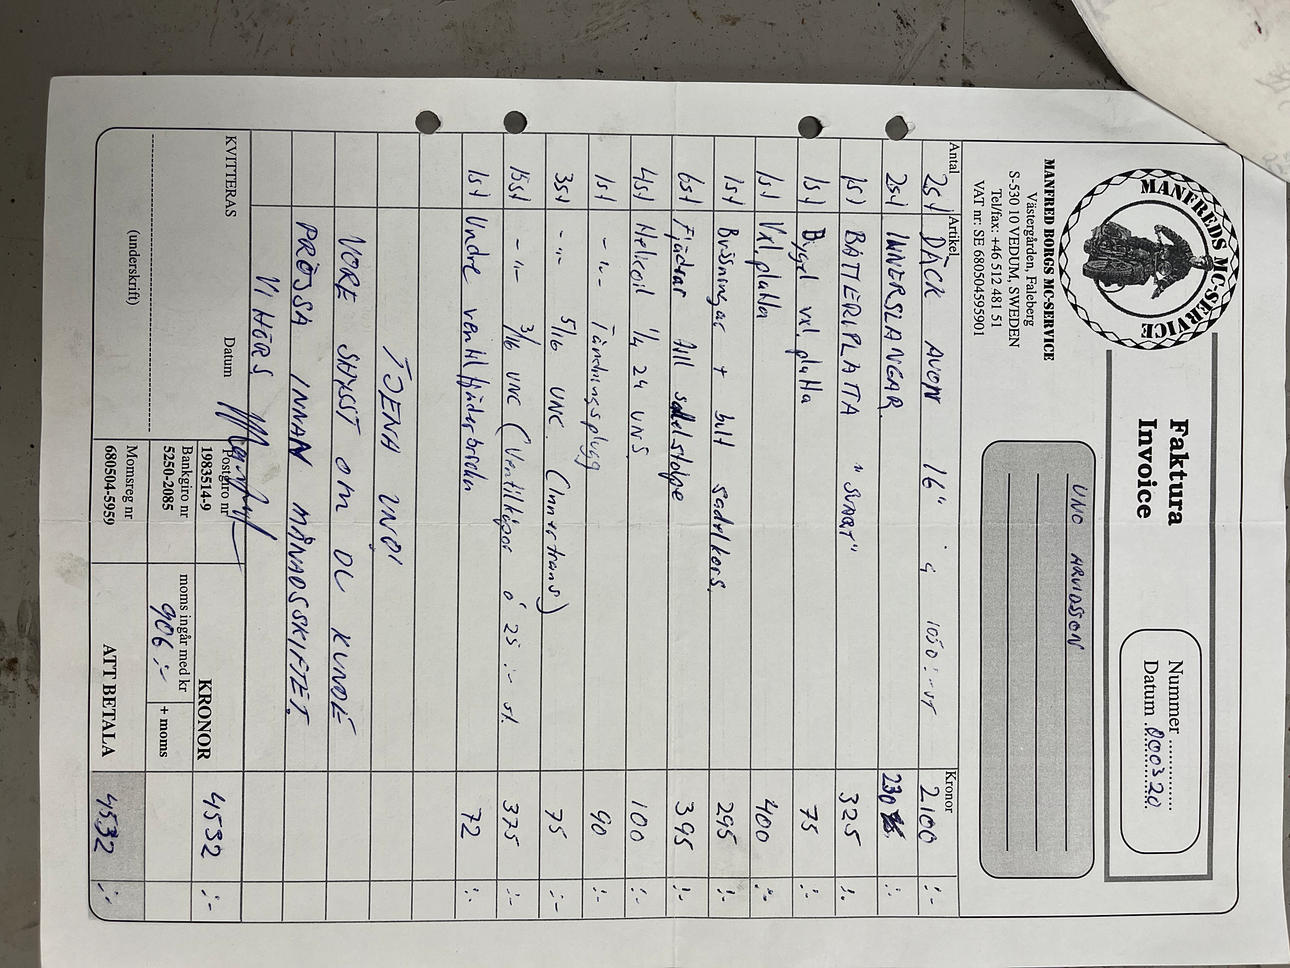 MANFREDS MC-SERVICE
Faktura
Invoice
Nummer
Datum 000320
MANFRED BORGS MC-SERVICE
Västergården, Faleberg
S-530 10 VEDUM, SWEDEN
Tel/fax: +46 512 481 51
VAT nr: SE 680504595901
UNO ARVIDSSON
Antal Artikel Kronor
2st DÄCK AVON 16" á 1050:- st 2100 :-
2st INNERSLANGAR 230 :-
1st BATTERIPLATTA "SVART" 325 :-
1st Bygel vxl. platta 75 :-
1st Vxl. platta 400 :-
1st Bussningar + bult sadelkors. 295 :-
6st Fjädrar till sadelstolpe 395 :-
4st Helicoil 1/4 24 UNS 100 :-
1st -"- Tändningsplugg 90 :-
3st -"- 5/16 UNC. (Innertrans) 75 :-
15st -"- 3/16 UNC (Ventilkåpor á 25:- st. 375 :-
1st Undre ventilfjäderbrickor 72 :-
TJENA UNO!
VORE SHYSST OM DU KUNDE
PRÖJSA INNAN MÅNADSSKIFTET.
VI HÖRS
KVITTERAS Datum
(underskrift)
Postgiro nr
1983514-9
Bankgiro nr
5250-2085
Momsreg nr
680504-5959
KRONOR 4532 :-
moms ingår med kr
906 :-
+ moms
ATT BETALA 4532 :-